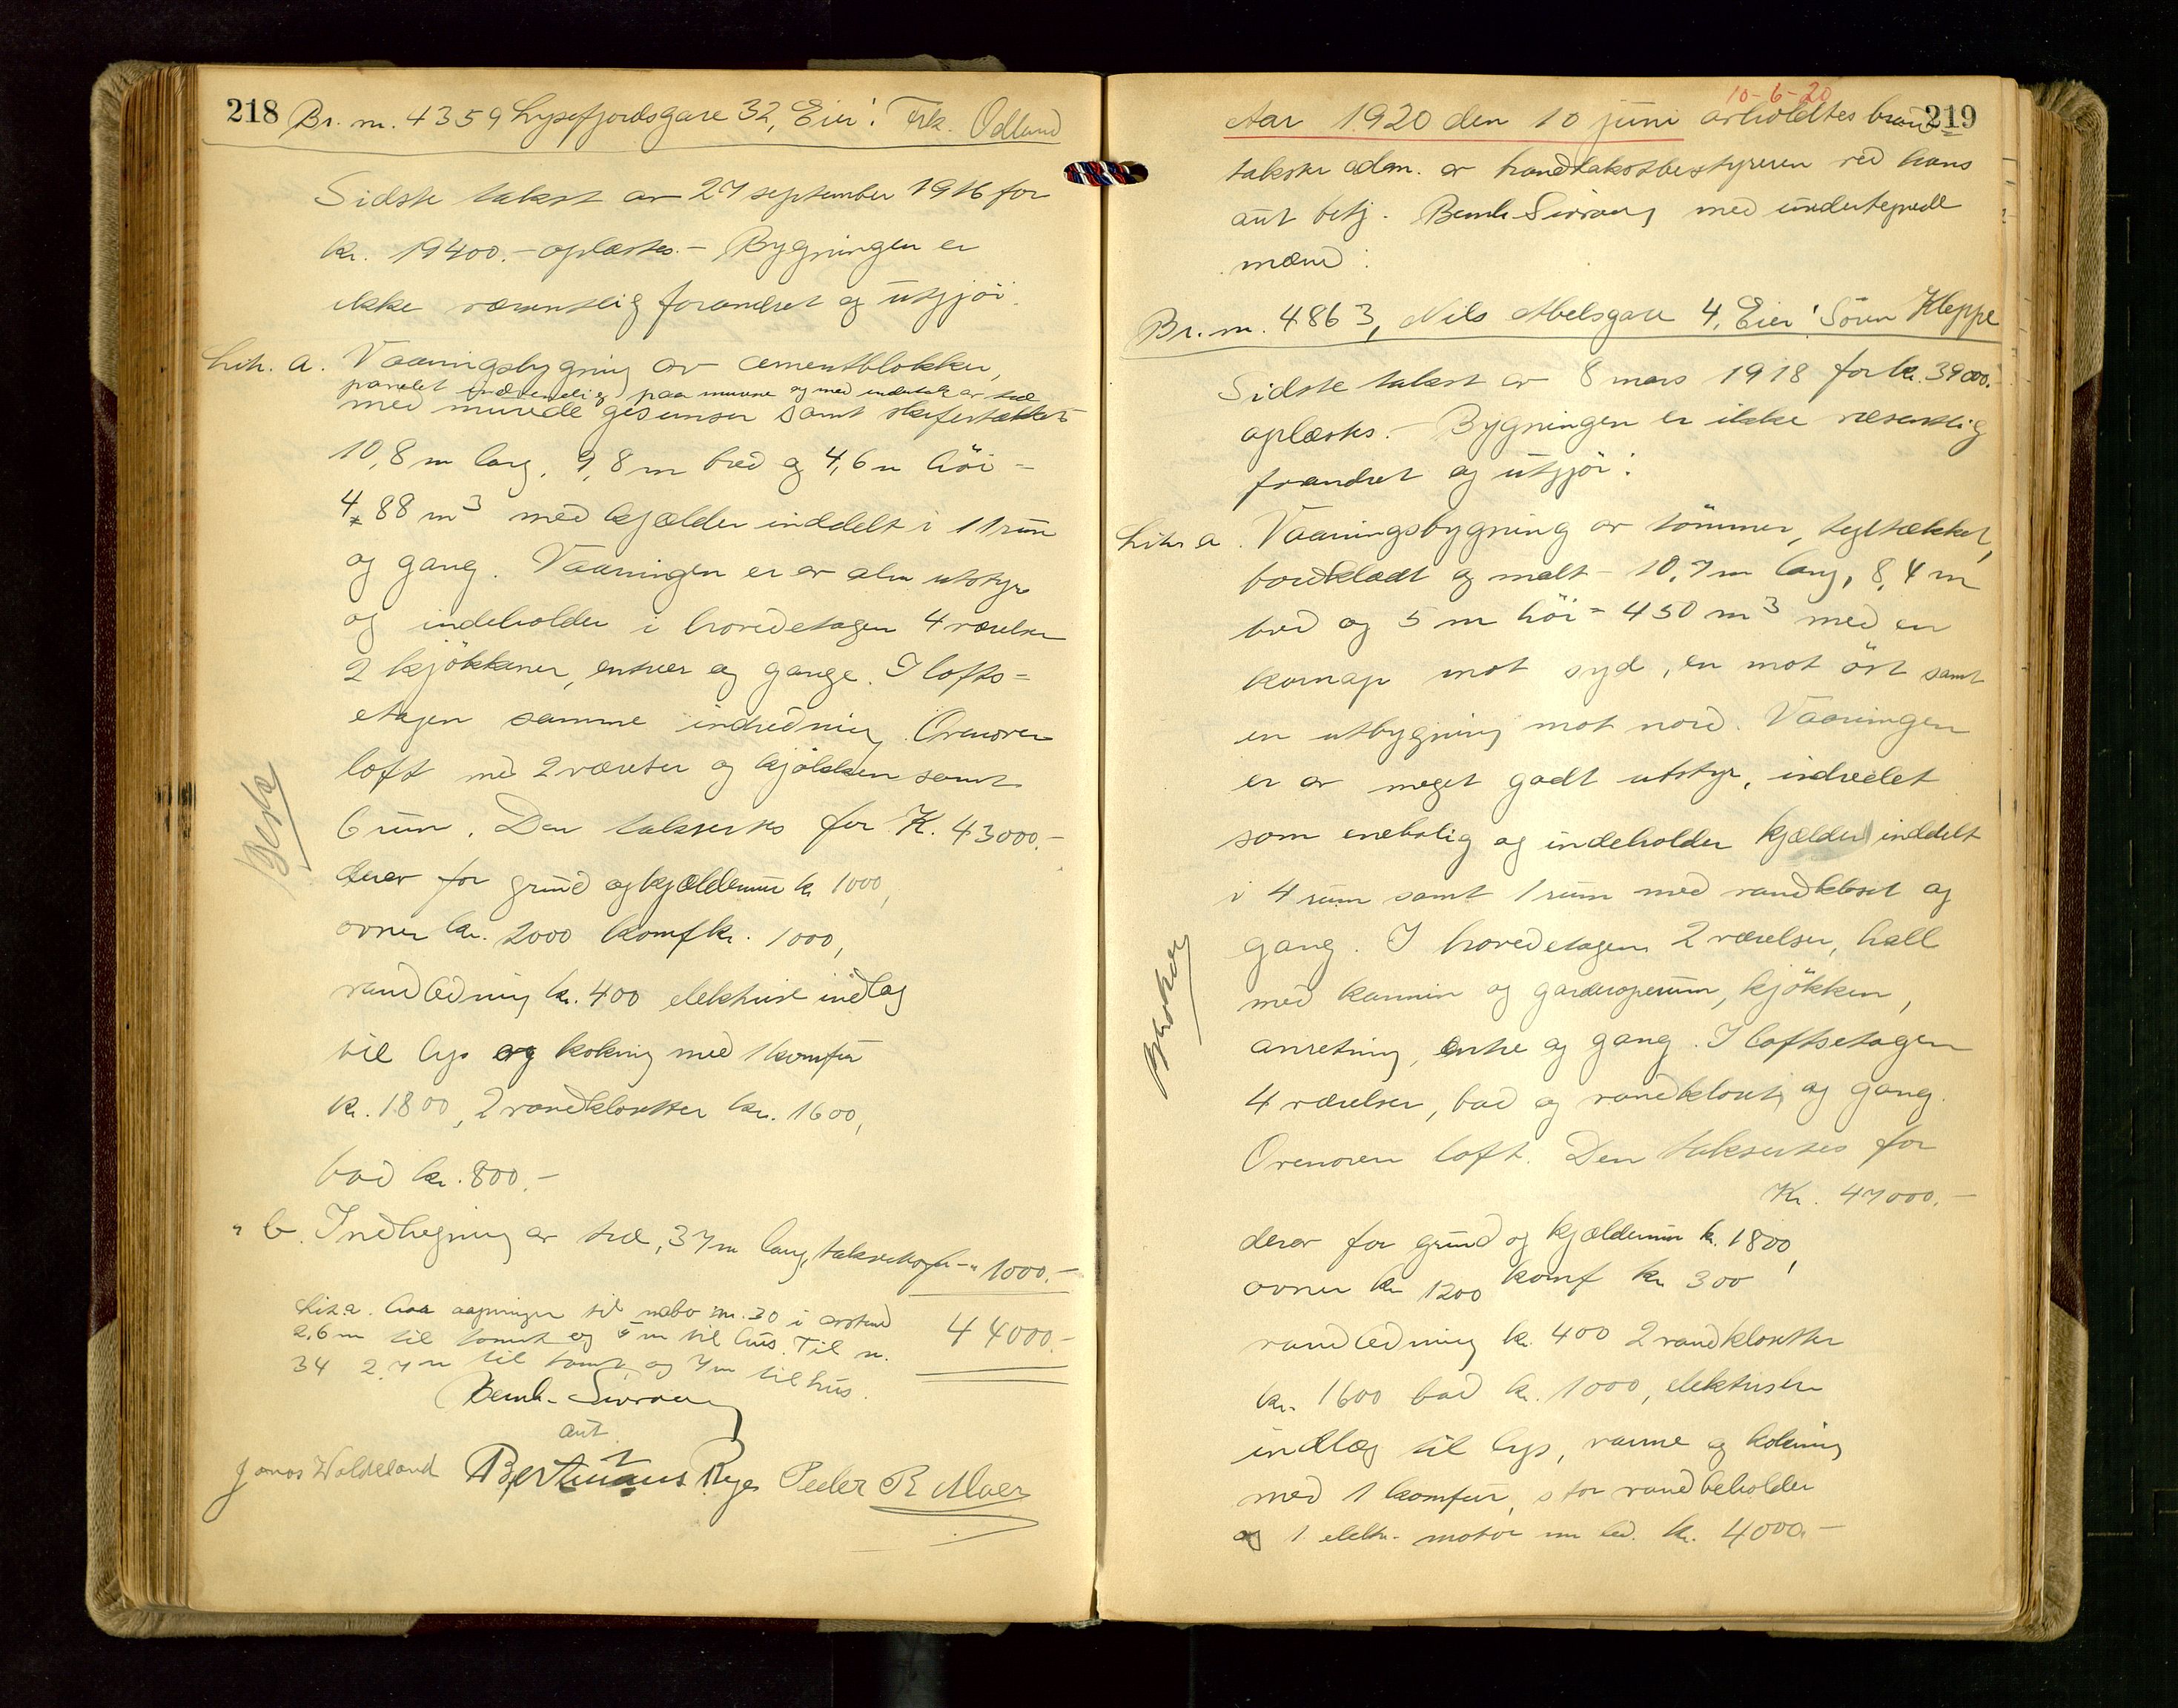 218
Br. nr. 4359 Lysefjordsgate 32, Eier: Frk. Odland
Sidste takst av 27 september 1916 for
kr. 19400.- oplæstes.- Bygningen er
ikke væsentlig forandret og utgjör.
Litr. a. Vaaningsbygning av cementblokker,
panelet indvendig paa murene og med indertak av træ
med murede gesimser samt skifertækket
10,8 m lang, 9,8 m bred og 4,6 m höi =
488 m³ med kjælder inddelt i 11 rum
og gang. Vaaningen er av alm utstyr
og indeholder i hovedetagen 4 værelser
2 kjökkener, entreer og gange. I lofts=
etagen samme indredning. Ovenover
loft med 2 værelser og kjökken samt
6 rum. Den takseres for K. 43000.-
derav for grund og kjældermur kr 1000,
ovner kr. 2000 komf kr. 1000,
vandledning kr. 400 elektrisk indlæg
til lys og kokning med 1 komfur
kr. 1800, 2 vandklosetter kr. 1600,
bad kr. 800.-
" b. Indhegning av træ, 37 m lang, taksertes for - " 1000.-
Lit a. har aapninger til nabo nr. 30 i avstand
2,6 m til tomt og 5 m til hus. Til nr.
34 2,7 m til tomt og 7 m til hus.
44000.-
Bernh. Sivraay
aut
Jonas Waldeland Bertinius Rege Peder R Moer
219
10-6-20
Aar 1920 den 10 juni avholdtes brand=
takster adm. av brandtakstbestyreren ved hans
aut betj. Bernh Sivraay med undertegnede
mænd:
Br. nr. 4863, Nils Abelsgate 4, Eier: Sören Kleppe
Sidste takst av 8 mars 1918 for kr. 39000.-
oplæstes. - Bygningen er ikke væsentlig
forandret og utgjör:
Litr a. Vaaningsbygning av tömmer, tegltækket,
bordklædt og malt - 10,7 m lang, 8,4 m
bred og 5 m höi = 450 m³ med en
karnap mot syd, en mot öst samt
en utbygning mot nord. Vaaningen
er av meget godt utstyr, indredet
som enebolig og indeholder kjælder inddelt
i 4 rum samt 1 rum med vandkloset og
gang. I hovedetagen 2 værelser, hall
med kamin og garderoperum, kjökken,
anretning, entre og gang. I loftsetagen
4 værelser, bad og vandkloset, og gang.
Ovenover loft. Den taksertes for
Kr. 47000.-
derav for grund og kjældermur kr. 1800,
ovner kr 1200 komf kr 300
vandledning kr. 400 2 vandklosetter
kr. 1600 bad kr. 1000, elektrisk
indlæg til lys, varme og kokning
med 1 komfur, stor vandbeholder
og 1 elektr. motor m led. kr. 4000.-